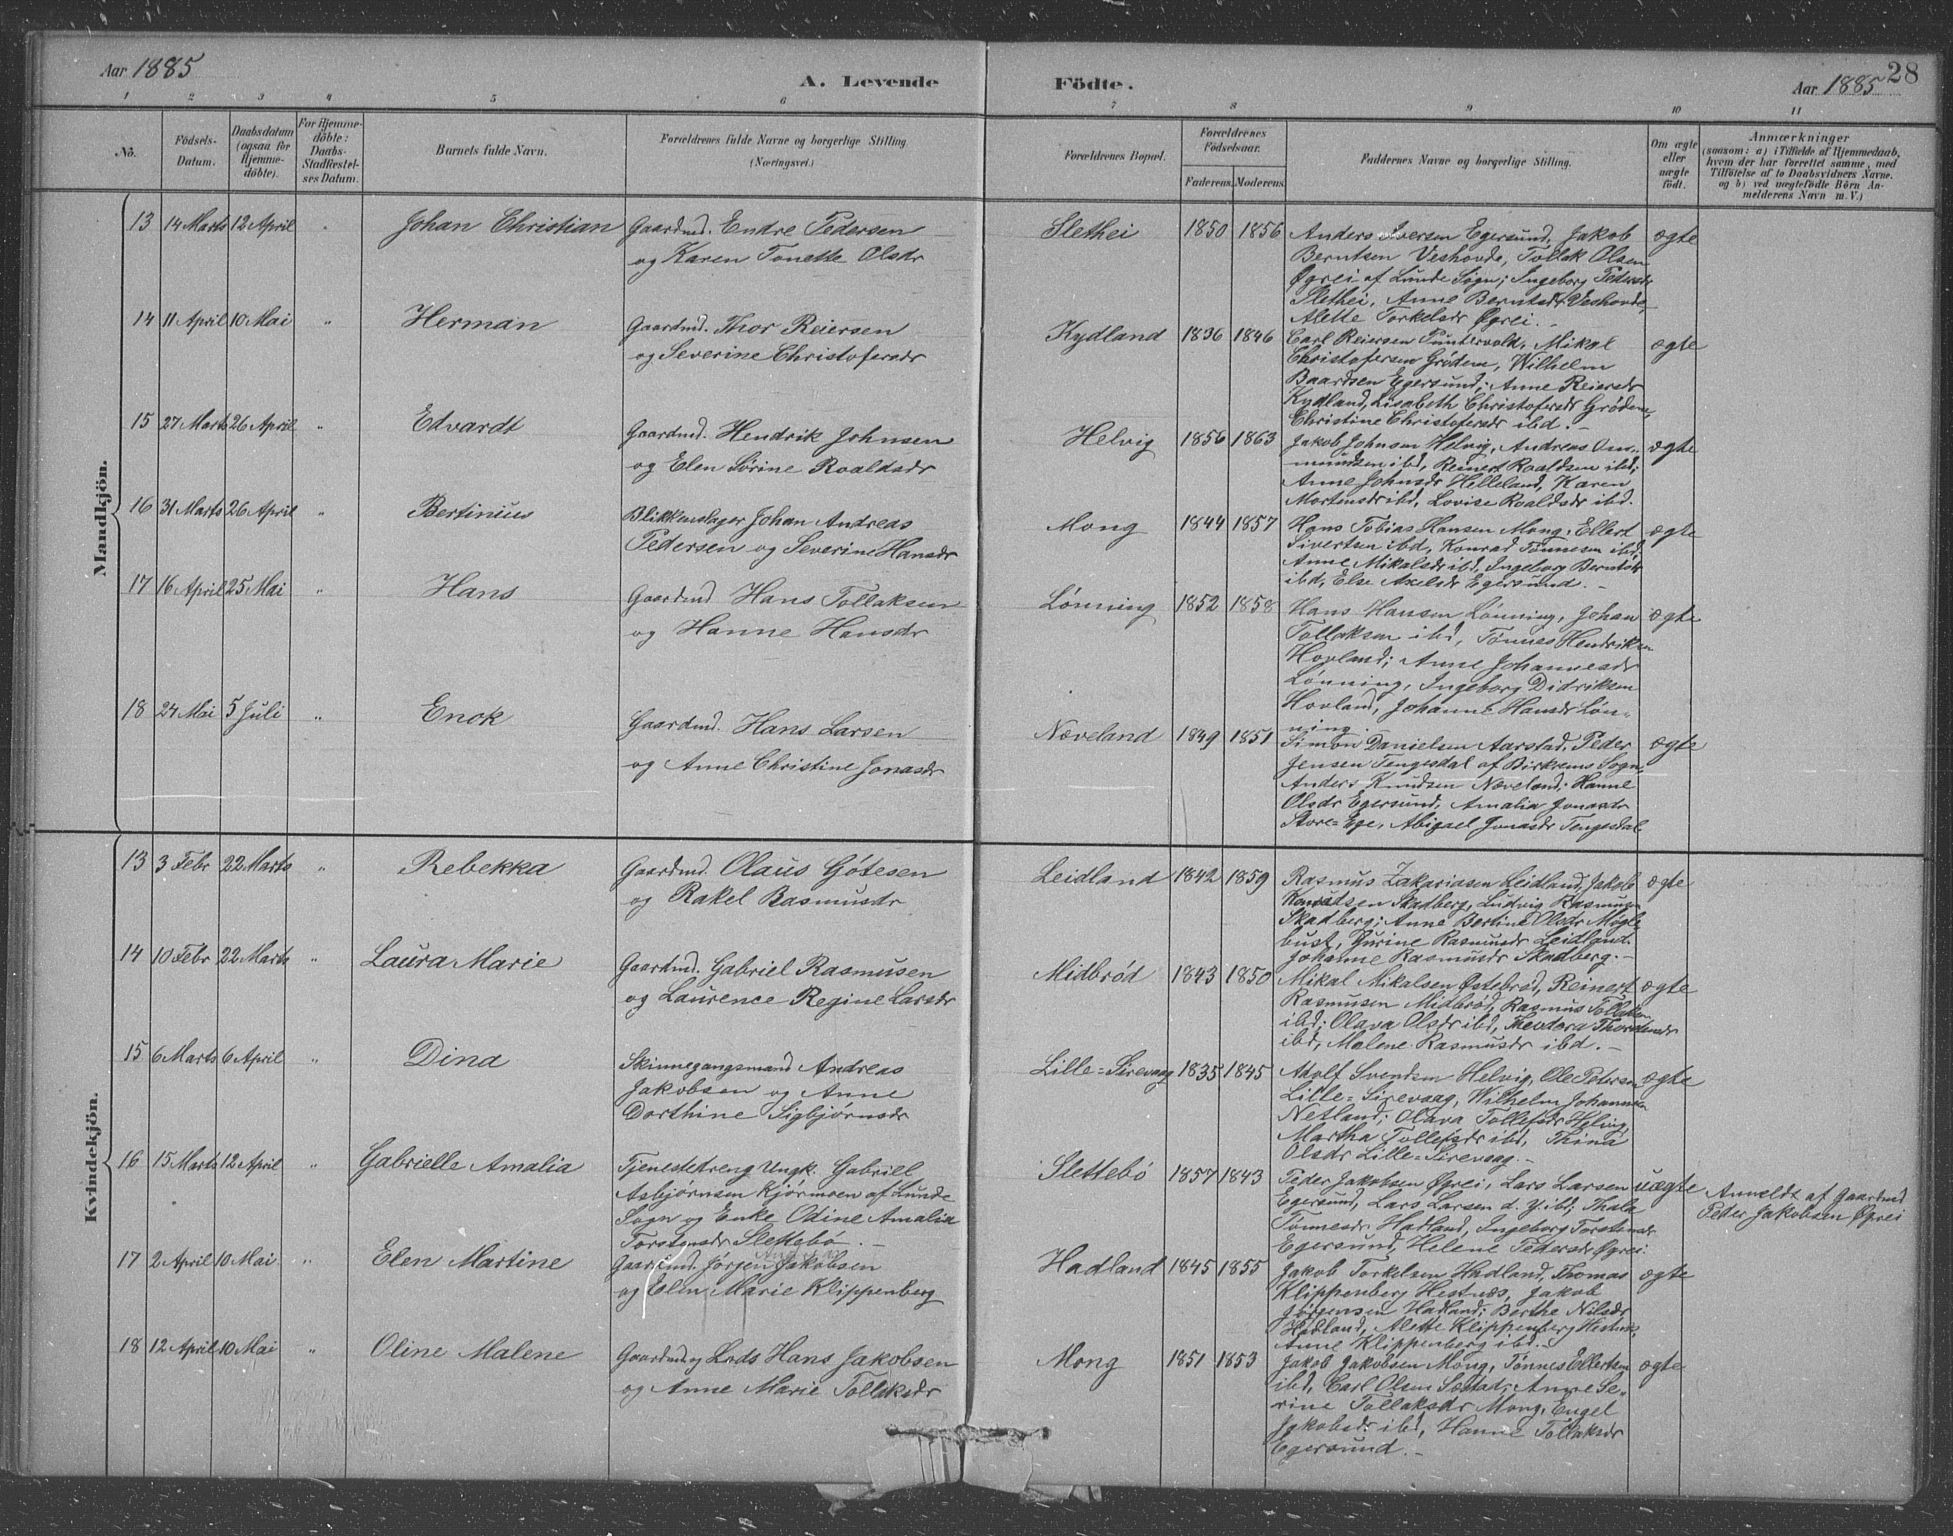 Aar 1885
A. Levende
Födte.
Aar 1885
28
1 2 3 4 5 6 7 8 9 10 11
No.
Födsels-
Datum.
Daabsdatum
(ogsaa for
Hjemme-
döbte).
For Hjemme-
döbte:
Daabs-
Stadfæstel-
ses Datum.
Barnets fulde Navn.
Forældrenes fulde Navne og borgerlige Stilling.
(Næringsvei.)
Forældrenes Bopæl.
Forældrenes
Födselsaar.
Faderens. Moderens.
Faddernes Navne og borgerlige Stilling.
Om ægte
eller
uægte
födt.
Anmærkninger
(saasom: a) i Tilfælde af Hjemmedaab,
hvem der har forrettet samme, med
Tilföielse af to Daabsvidners Navne,
og b) ved uægtefödte Börn An-
melderens Navn m. V.)
Mandkjön.
13 14 Marts 12 April " Johan Christian
Gaardmd. Endre Pedersen
og Karen Tonette Olsdr
Slethei 1850 1856
Anders Iversen Egersund, Jakob
Berntsen Veshovde, Tollak Olsen
Øgrei af Lunde Sogn; Ingeborg Pedersdr
Slethei, Anne Berntsdr Veshovde,
Alette Torkelsdr Øgrei.
ægte
14 11 April 10 Mai " Herman
Gaardmd. Thor Reiersen
og Severine Christofersdr
Kydland 1836 1846
Carl Reiersen Puntervold, Mikal
Christofersen Grödem, Wilhelm
Baardsen Egersund; Anne Reiersdr
Kydland, Lisabeth Christofersdr Grödem,
Christine Christofersdr ibid.
ægte
15 27 Marts 26 April " Edvardt
Gaardmd. Hendrik Johnsen
og Elen Sørine Roaldsdr
Helvig 1856 1863
Jakob Johnsen Helvig, Andreas Om-
mundsen ibd, Reinert Roaldsen ibd;
Anne Johnsdr Helleland, Karen
Mortensdr ibd, Lovise Roaldsdr ibd.
ægte
16 31 Marts 26 April " Bertinius
Blikkenslager Johan Andreas
Pedersen og Severine Hansdr
Mong 1844 1857
Hans Tobias Hansen Mong, Ellert
Sivertsen ibd, Konrad Tønnesen ibd,
Anne Mikalsdr ibd, Ingeborg Berntsdr
ibd, Else Axelsdr Egersund.
ægte
17 16 April 25 Mai " Hans
Gaardmd Hans Tollaksen
og Hanne Hansdr
Lønning 1852 1858
Hans Hansen Lønning, Johan
Tollaksen ibd, Tønnes Hendriksen
Hovland; Anne Johannesdr
Lønning, Ingeborg Didriksen
Hovland, Johanne Hansdr Løn-
ning.
ægte
18 24 Mai 5 Juli " Enok
Gaardmd. Hans Larsen
og Anne Christine Jonasdr
Næveland 1849 1851
Simon Danielsen Aarstad, Peder
Jensen Tengesdal af Birkrems Sogn,
Anders Knudsen Næveland; Hanne
Olsdr Egersund, Amalia Jonasdr
Store=Ege, Abigael Jonasdr Tengesdal
ægte
Kvindekjön.
13 3 Febr 22 Marts " Rebekka
Gaardmd. Olaus Götesen
og Rakel Rasmusdr
Leidland 1842 1859
Rasmus Zakariasen Leidland, Jakob
Skadberg, Ludvig Rasmusen
Skadberg; Anne Bertine Olsdr Mögle
bust, Gurine Rasmusdr Leidland,
Johanne Rasmusdr Skadberg.
ægte
14 10 Febr 22 Marts " Laura Marie
Gaardmd. Gabriel Rasmusen
og Laurence Regine Larsdr
Midbrød 1843 1850
Mikal Mikalsen Østebrød, Reinert
Rasmusen Midbrød, Rasmus Tollaksen
ibd; Olava Olsdr ibd, Theodora
ibd, Malene Rasmusdr ibd.
ægte
15 6 Marts 6 April " Dina
Skinnegangsmand Andreas
Jakobsen og Anne
Dorthine Sigbjørnsdr
Lille=Sirevaag 1835 1845
Adolf Svendsen Helvig, Ole Petersen
Lille=Sirevaag, Wilhelm Johannesen
Netland; Olava Tollefsdr Helvig,
Martha Tollefsdr ibd, Thina
Olsdr Lille=Sirevaag.
ægte
16 15 Marts 12 April " Gabrielle Amalia
Tjenestedreng Ungk. Gabriel
Asbjørnsen Kjørmoen af Lunde
Sogn og Enke Odine Amalia
Torstensdr Slettebø.
Slettebö 1857 1843
Peder Jakobsen Øgrei, Lars Larsen
Egersund, Lars Larsen d. Y. ibd; Thala
Tønnesdr Hadland, Ingeborg Torstensdr
Egersund, Helene Pedersdr Øgrei
uægte
Anmeldt af Gaardmd
Peder Jakobsen Øgrei
17 2 April 10 Mai " Elen Martine
Gaardmd. Jørgen Jakobsen
og Elen Marie Klippenberg
Hadland 1845 1855
Jakob Torkelsen Hadland, Thomas
Klippenberg Hestnæs, Jakob
Jørgensen Hadland; Berthe Nilsdr
Hadland, Alette Klippenberg Hestnæs,
Anne Klippenberg ibd.
ægte
18 12 April 10 Mai " Oline Malene
Gaardmd. og Lods Hans Jakobsen
og Anne Marie Tollaksdr
Mong 1851 1853
Jakob Jakobsen Mong, Tønnes Ellertsen
ibd, Carl Olsen Sæstad; Anne Se-
rine Tollaksdr Mong, Engel
Jakobsdr ibd, Hanne Tollaksdr
Egersund.
ægte